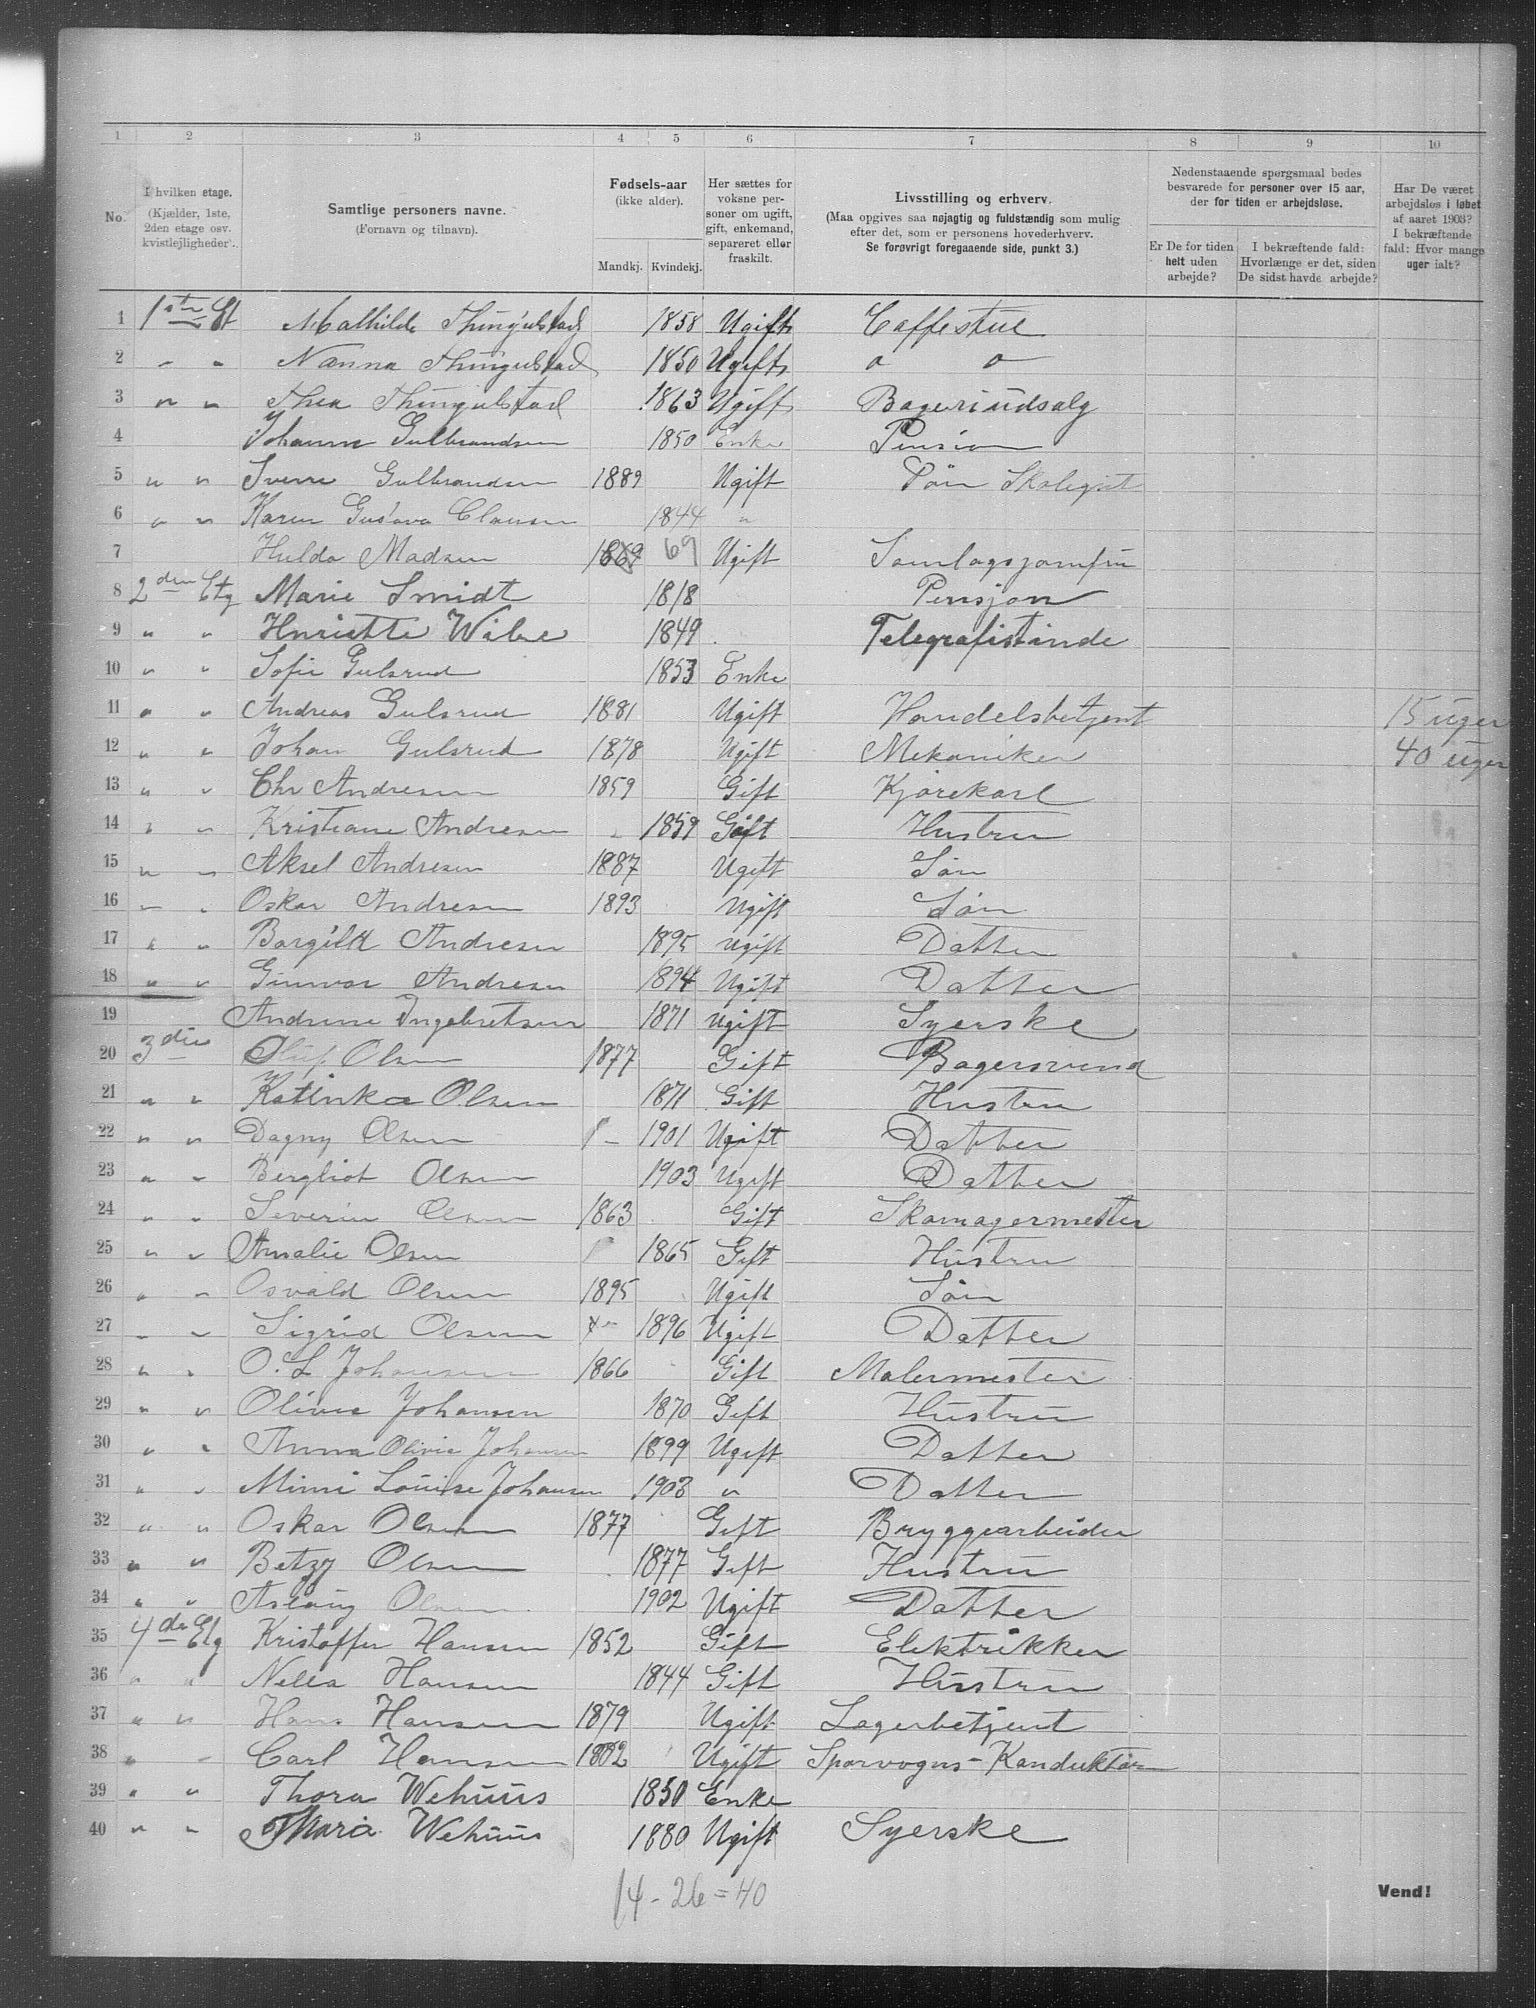 1 2 3 4 5 6 7 8 9 10
No.
I hvilken etage.
(Kjælder, 1ste,
2den etage osv.
kvistlejligheder).
Samtlige personers navne.
(Fornavn og tilnavn).
Fødsels-aar
(ikke alder).
Mandkj. Kvindekj.
Her sættes for
voksne per-
soner om ugift,
gift, enkemand,
separeret eller
fraskilt.
Livsstilling og erhverv.
(Maa opgives saa nøjagtig og fuldstændig som mulig
efter det, som er personens hovederhverv.
Se forøvrigt foregaaende side, punkt 3.)
Nedenstaaende spørgsmaal bedes
besvarede for personer over 15 aar,
der for tiden er arbejdsløse.
Er De for tiden
helt uden
arbejde?
I bekræftende fald:
Hvorlænge er det, siden
De sidst havde arbejde?
Har De været
arbejdsløs i løbet
af aaret 1903?
I bekræftende
fald: Hvor mange
uger ialt?
1 1ste Et Mathilde Thingulstad 1858 Ugift Caffestue
2 " " Nanna Thingulstad 1850 Ugift " "
3 " " Thea Thingulstad 1863 Ugift Bageriudsalg
4 Johanne Gulbrandsen 1850 Enke Pension
5 " " Sverre Gulbrandsen 1889 Ugift Søn Skolegut
6 " " Karen Gustava Clausen 1844 "
7 Hulda Madsen 1869 69 Ugift Samlagsjomfru
8 2den Etg Marie Smidt 1818 Pensjon
9 " " Henriette Wibe 1849 Telegrafistinde
10 " " Sofie Gulsrud 1853 Enke
11 " " Andreas Gulsrud 1881 Ugift Handelsbetjent 15 uger
12 " " Johan Gulsrud 1878 Ugift Mekaniker 40 uger
13 " " Chr Andresen 1859 Gift Kjørekarl
14 " " Kristiane Andresen " 1859 Gift Hustru
15 " " Aksel Andresen 1887 Ugift Søn
16 " " Oskar Andresen 1893 Ugift Søn
17 " " Borgild Andresen 1895 Ugift Datter
18 " " Gunvor Andresen 1894 Ugift Datter
19 Andrine Ingebretsen 1871 Ugift Syerske
20 3die Oluf Olsen 1877 Gift Bagersvend
21 " " Katinka Olsen 1871 Gift Hustru
22 " " Dagny Olsen 1901 Ugift Datter
23 " " Bergliot Olsen 1903 Ugift Datter
24 " " Severin Olsen 1863 Gift Skomagermester
25 " " Amalie Olsen 1865 Gift Hustru
26 " " Osvald Olsen 1895 Ugift Søn
27 " " Sigrid Olsen 1896 Ugift Datter
28 " " O. L Johansen 1866 Gift Malermester
29 " " Olivia Johansen 1870 Gift Hustru
30 " " Anna Olivia Johansen 1899 Ugift Datter
31 " " Mimi Louise Johansen 1903 " Datter
32 " " Oskar Olsen 1877 Gift Bryggearbeider
33 " " Betzy Olsen 1877 Gift Hustru
34 " " Aslaug Olsen 1902 Ugift Datter
35 4de Etg Kristoffer Hansen 1852 Gift Elektrikker
36 " " Nella Hansen 1844 Gift Hustru
37 " " Hans Hansen 1879 Ugift Lagerbetjent
38 " " Carl Hansen 1882 Ugift Sporvogns-Konduktør
39 " " Thora Wehuus 1850 Enke
40 " " Mara Wehuus 1880 Ugift Syerske
14 - 26 = 40
Vend!